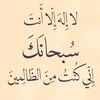 لَا إِلَهَ إِلَّا أَنتَ
سُبْحَانَكَ
إِنِّي كُنتُ مِنَ الظَّالِمِينَ